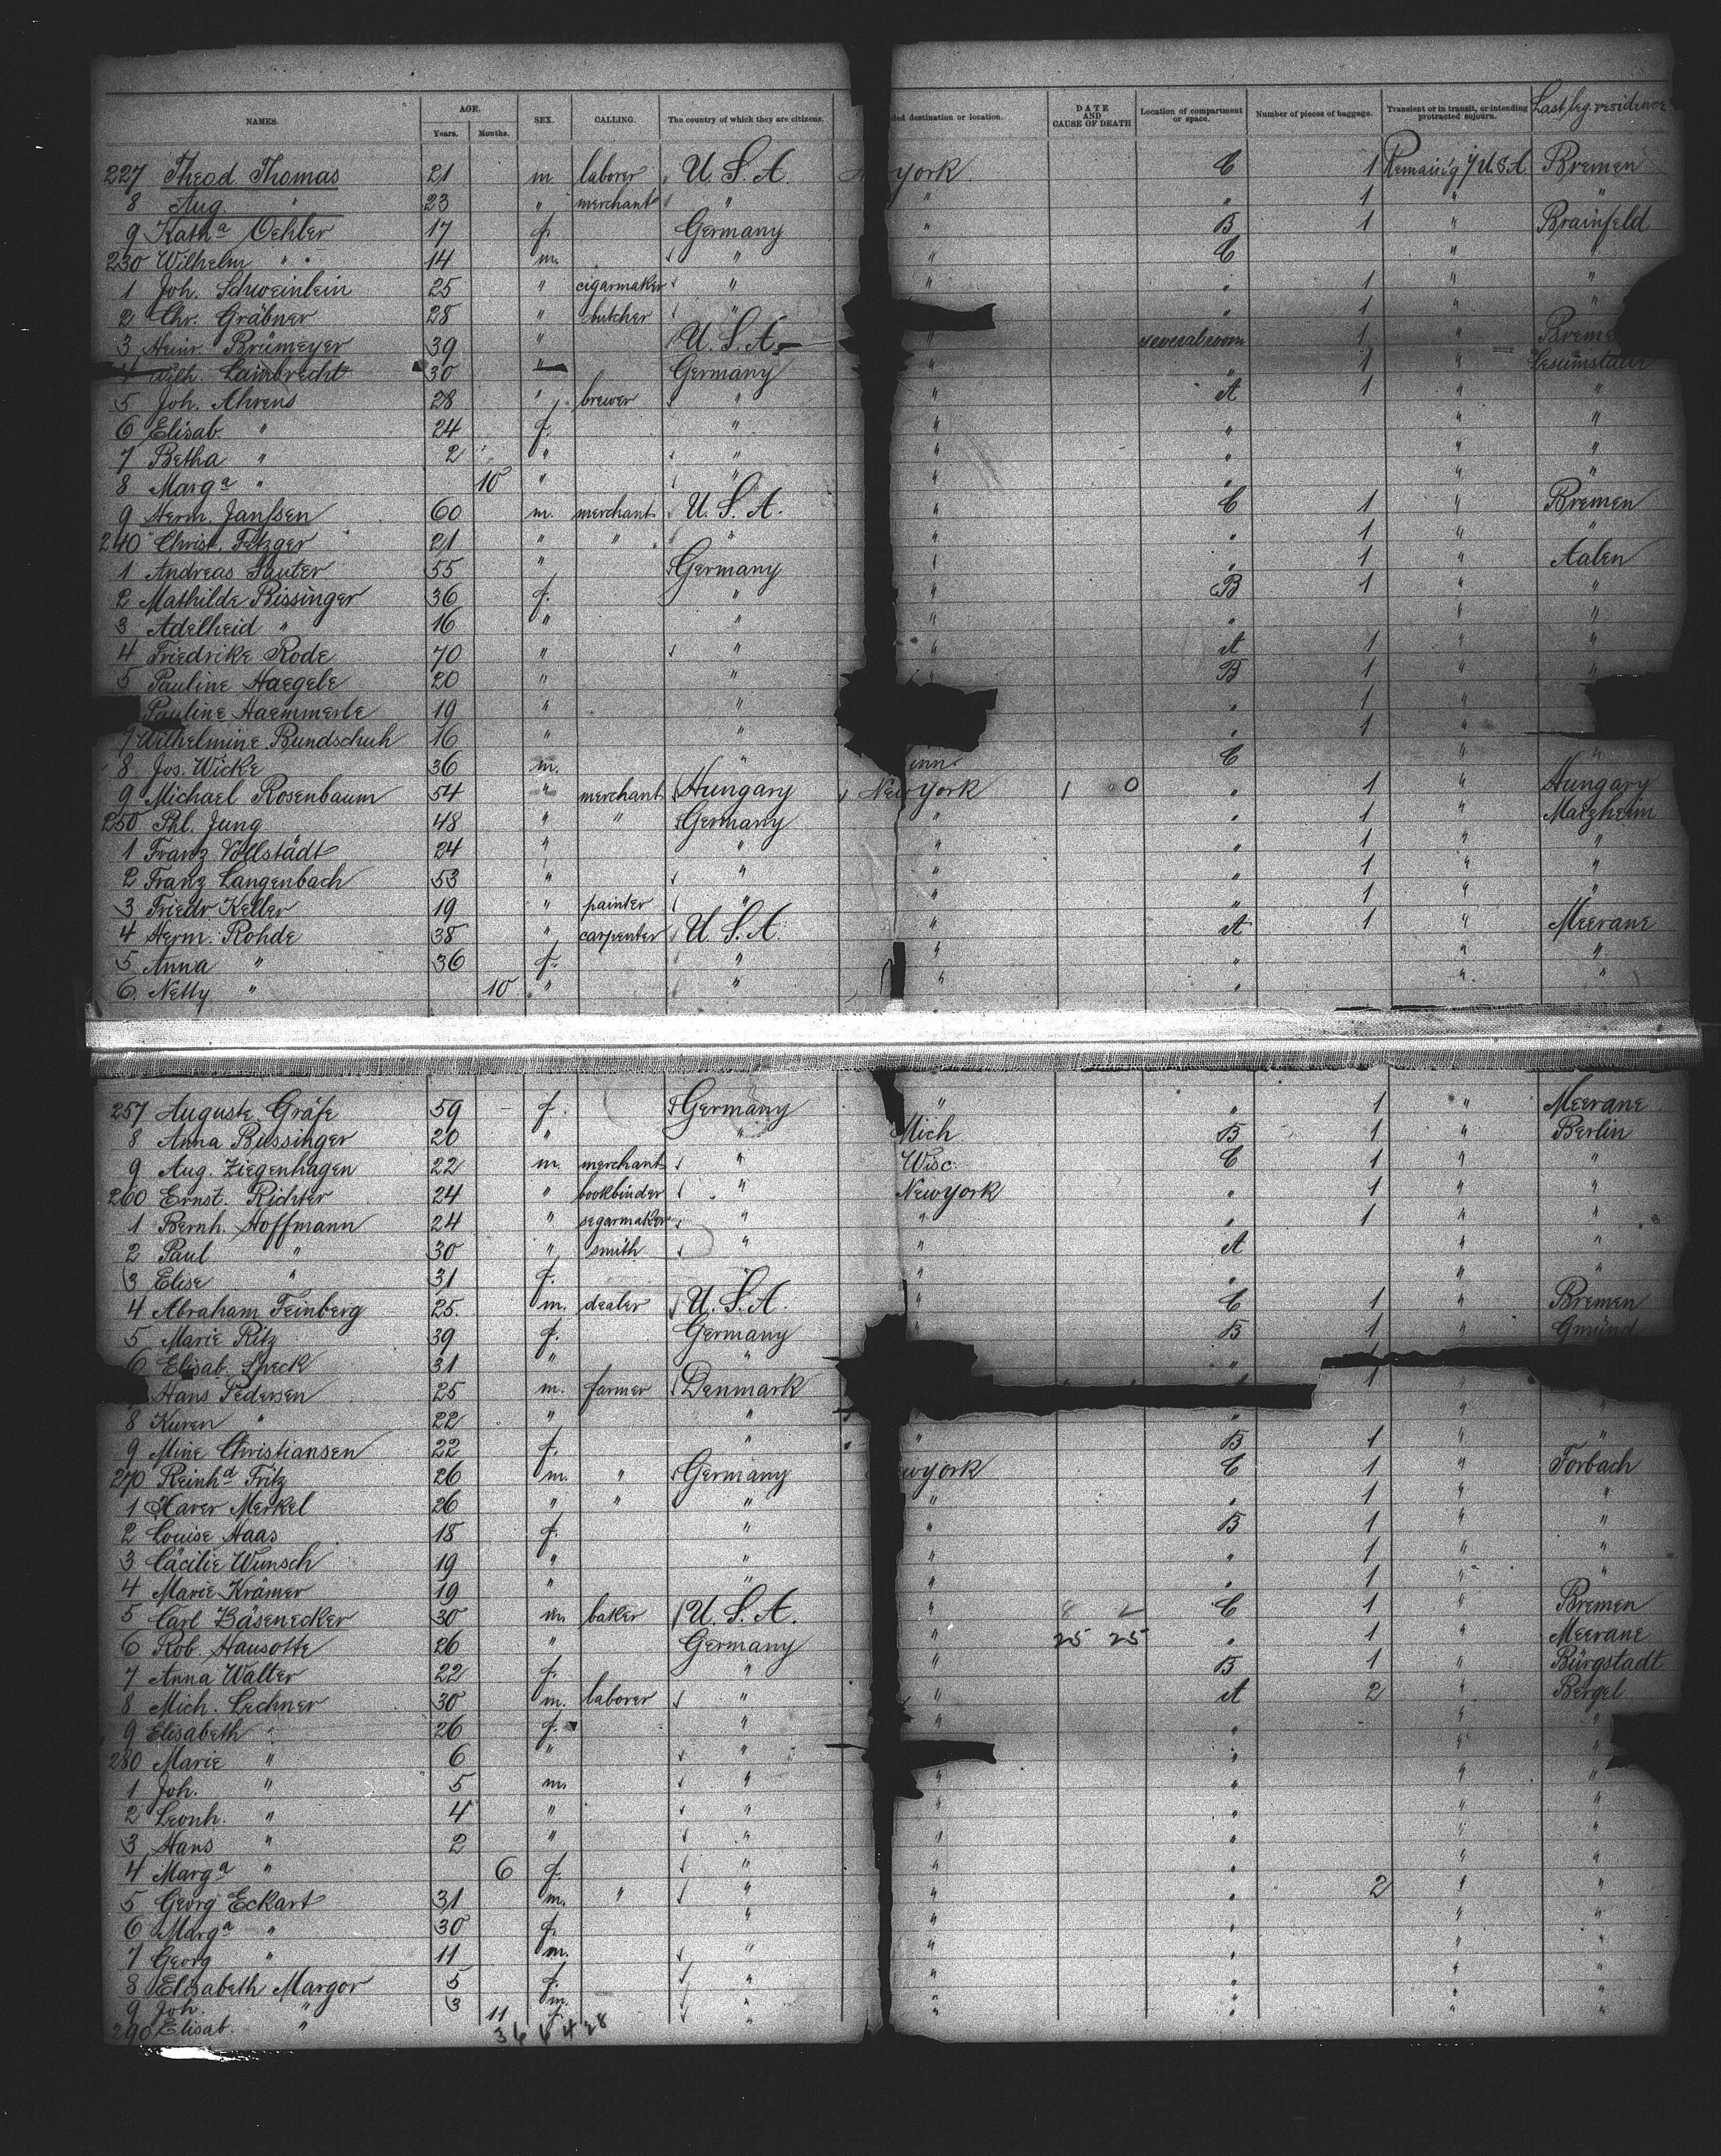 NAMES. AGE. Years. Months. SEX. CALLING. The country of which they are citizens. ded destination or location. DATE AND CAUSE OF DEATH Location of compartment or space. Number of pieces of baggage. Transient or in transit, or intending protracted sojourn. Last leg. residence
227 Theod. Thomas 21 m. laborer U. S. A. york C 1 Remain'g i/ U.S.A. Bremen
8 Aug. " 23 " merchant " " " 1 " "
9 Katha Oehler 17 f. Germany " B 1 " Brainfeld
230 Wilhelm " 14 m. " " C " "
1 Joh. Schweinlein 25 " cigarmaker " " " 1 " "
2 Chr. Gräbner 28 " butcher " " 1 " "
3 Heinr. Brümeyer 39 " U. S. A. " several room 1 " Breme
4 Wilh. Lambrecht 30 " Germany " " 1 "
5 Joh. Ahrens 28 " brewer " " A 1 " "
6 Elisab. " 24 f. " " " " "
7 Betha " 2 " " " " " "
8 Marga " 10 " " " " " "
9 Herm. Janssen 60 m. merchant U. S. A. " C 1 " Bremen
240 Christ. Fetzger 21 " " " " " 1 " "
1 Andreas Sauter 55 " Germany " " 1 " Aalen
2 Mathilde Bissinger 36 f. " " B 1 " "
3 Adelheid " 16 " " " " " "
4 Friedrike Rode 70 " " " A 1 " "
5 Pauline Haegele 20 " " B 1 " "
Pauline Haemmerle 19 " " " 1 "
7 Wilhelmine Bundschuh 16 " " " 1 "
8 Jos. Wicke 36 m. " inn. C " "
9 Michael Rosenbaum 54 " merchant Hungary New York 1 0 " 1 " Hungary
250 Phl. Jung 48 " " Germany " " 1 " Matzheim
1 Franz Vollstädt 24 " " " " 1 " "
2 Franz Langenbach 53 " " " " 1 " "
3 Friedr Keller 19 " painter " " " 1 " "
4 Herm. Rohde 38 " carpenter U. S. A. " A 1 " Meerane
5 Anna " 36 f. " " " " "
6 Netty " 10 " " " " " "
257 Auguste Gräfe 59 f. Germany " " 1 " Meerane
8 Anna Bussinger 20 " " Mich B 1 " Berlin
9 Aug. Ziegenhagen 22 m. merchant " Wisc. C 1 " "
260 Ernst. Richter 24 " bookbinder " New york " 1 " "
1 Bernh. Hoffmann 24 " segarmaker " " " 1 " "
2 Paul " 30 " smith " " A " "
3 Elise " 31 f. " " " " "
4 Abraham Feinberg 25 m. dealer U. S. A. " C 1 " Bremen
5 Marie Ritz 39 f. Germany " B 1 " Gmünd
6 Elisab. Speck 31 " " "
Hans Pedersen 25 m. farmer Denmark 1 "
8 Kuren " 22 " " " " " "
9 Mine Christiansen 22 f. " " B 1 " "
270 Reinha Fritz 26 m. " Germany ewyork C 1 " Forbach
1 Xaver Merkel 26 " " " " " 1 " "
2 Louise Haas 18 f. " " B 1 " "
3 Cäcilie Wunsch 19 " " " " 1 " "
4 Marie Krämer 19 " " " " 1 " "
5 Carl Bäsenecker 30 m. baker U. S. A. " C 1 " Bremen
6 Rob. Hausotte 26 " Germany " 25 25 " 1 " Meerane
7 Anna Walter 22 f. " " B 1 " Bürgstadt
8 Mich. Lechner 30 m. laborer " " A 2 " Bergel
9 Elisabeth " 26 f. " " " " "
280 Marie " 6 " " " " " "
1 Joh. " 5 m. " " " " "
2 Leonh. " 4 " " " " " "
3 Hans " 2 " " " " " "
4 Marga " 6 f. " " " " "
5 Georg Eckart 31 m. " " " " 2 " "
6 Marga " 30 f. " " " " "
7 Georg " 11 m. " " " " "
8 Elisabeth Margor 5 f. " " " " "
9 Joh. " 3 m. " " " " "
290 Elisab. " 11 f. " " " " "